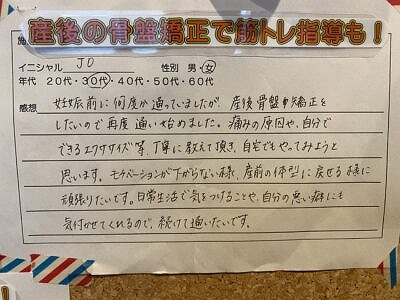 産後の骨盤矯正で筋トレ指導も！
イニシャル JO 性別 男・女
年代 20代・30代・40代・50代・60代
感想 妊娠前に何度か通っていましたが、産後骨盤矯正を
したいので再度通い始めました。痛みの原因や、自分で
できるエクササイズ等、丁寧に教えて頂き、自宅でもやってみようと
思います。モチベーションが下がらない様、産前の体型に戻せる様に
頑張りたいです。日常生活で気をつけることや、自分の悪い癖にも
気付かせてくれるので、続けて通いたいです。